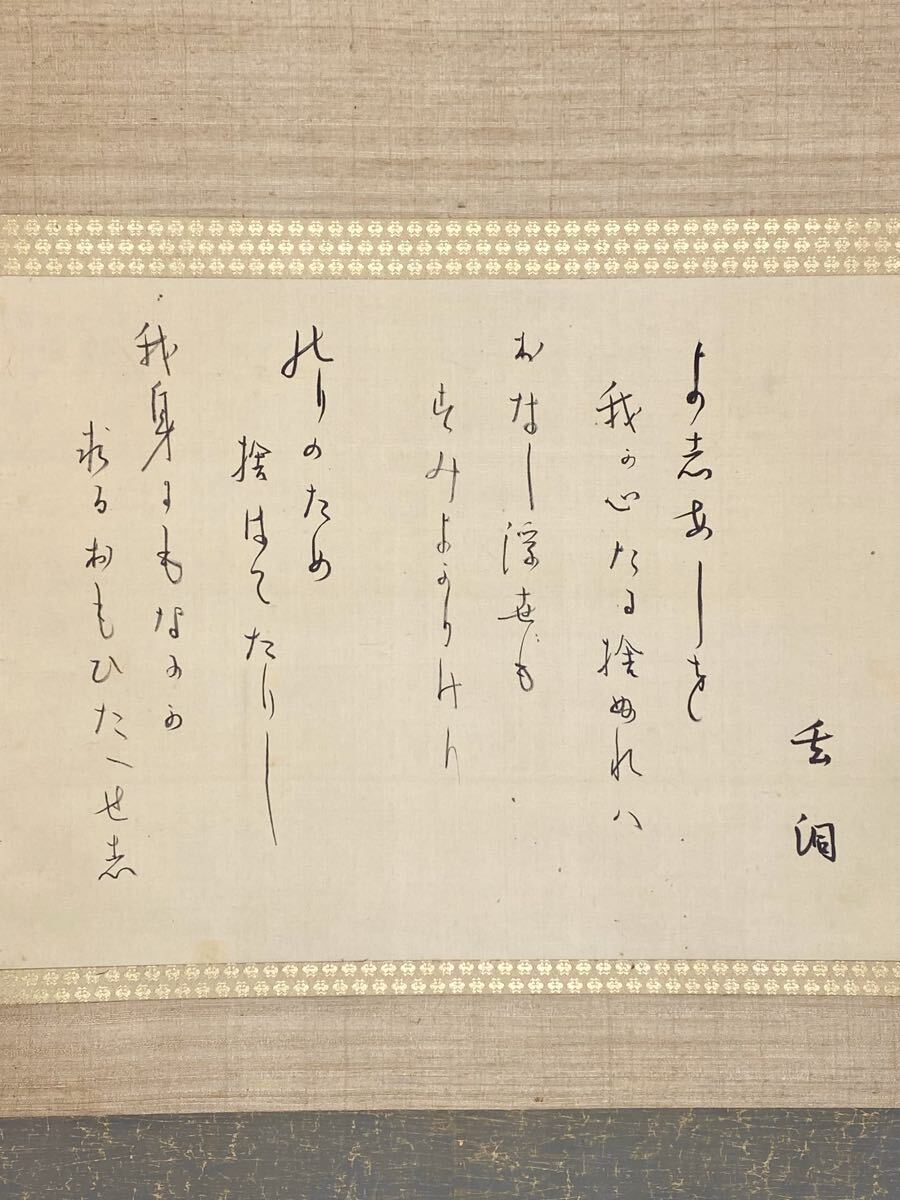 雲洞
よの志あしを
我か心たに捨ぬれハ
おなし浮世も
すみよかりけり
のりのため
捨はてたりし
我身にもなにか
求るおもひたへせし